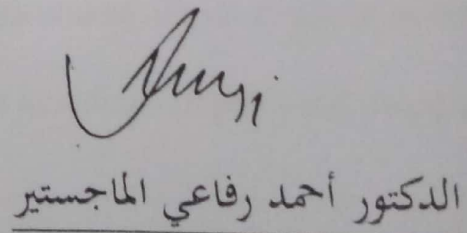 الدكتور أحمد رفاعي الماجستير